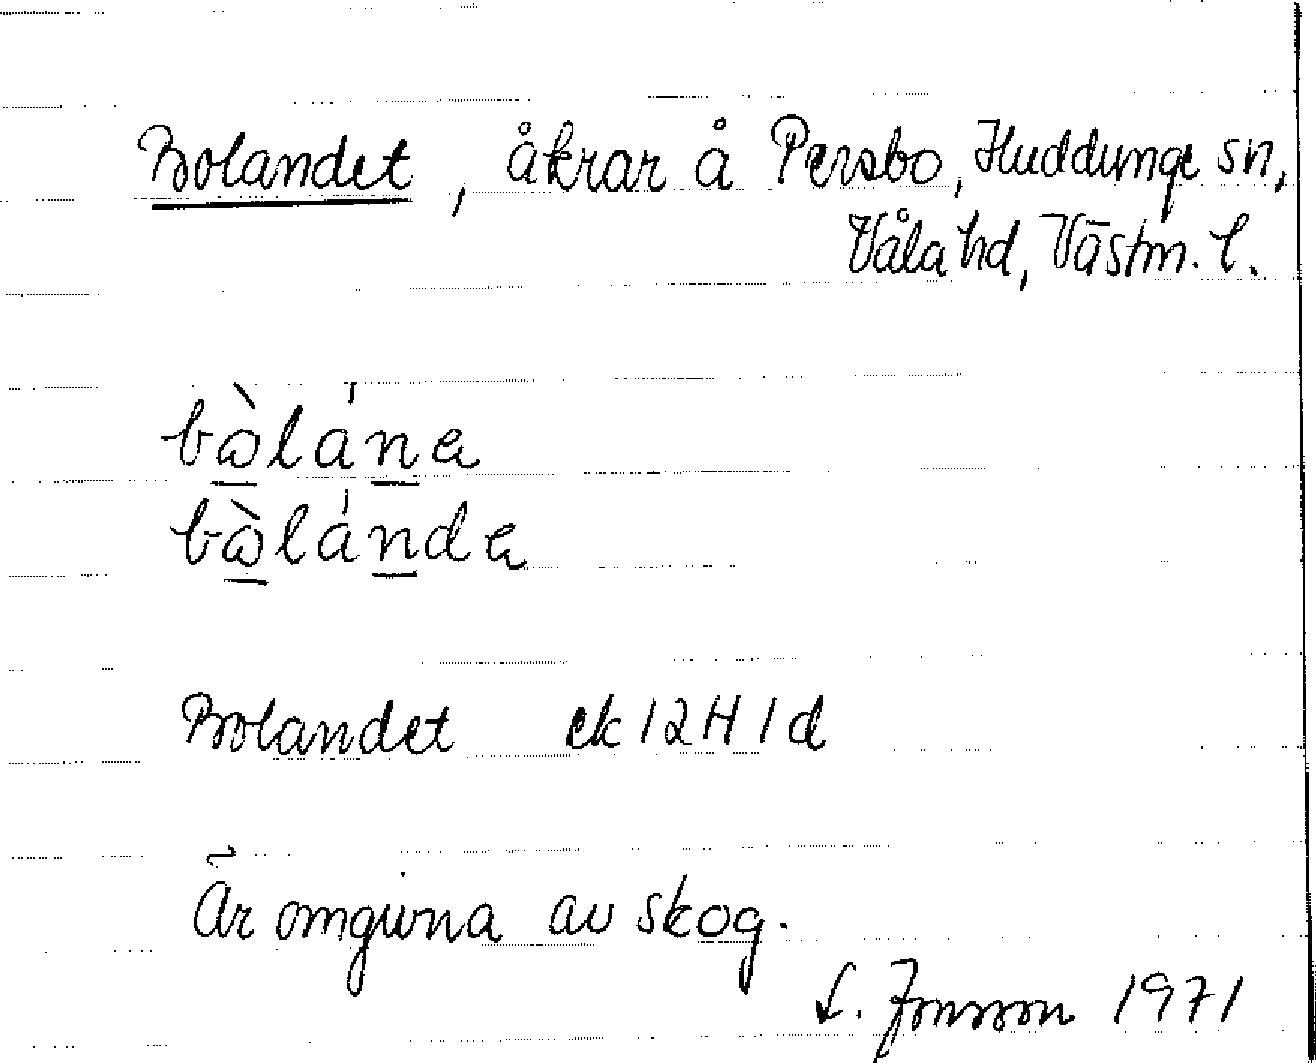 Bolandet, åkrar å Persbo, Huddunge sn,
Våla hd, Västm. l.
bὼ̲lán̲a
bὼ̲lán̲da
Bolandet ek 12H1d
Är omgivna av skog.
L. Jonsson 1971